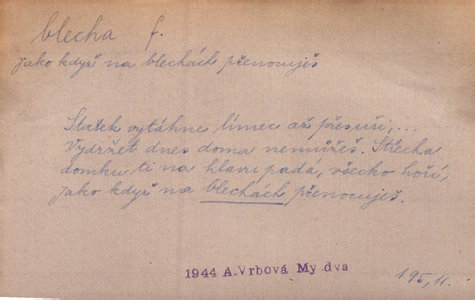 blecha f.
jako když na blechách přenocuješ
Stařek vytáhne límec až přes uši,...
Vydržet dnes doma nemůžeš. Střecha
domku ti na hlavu padá, všecko hoří,
jako když na blechách přenocuješ.
1944 A.Vrbová My dva
195, 11.